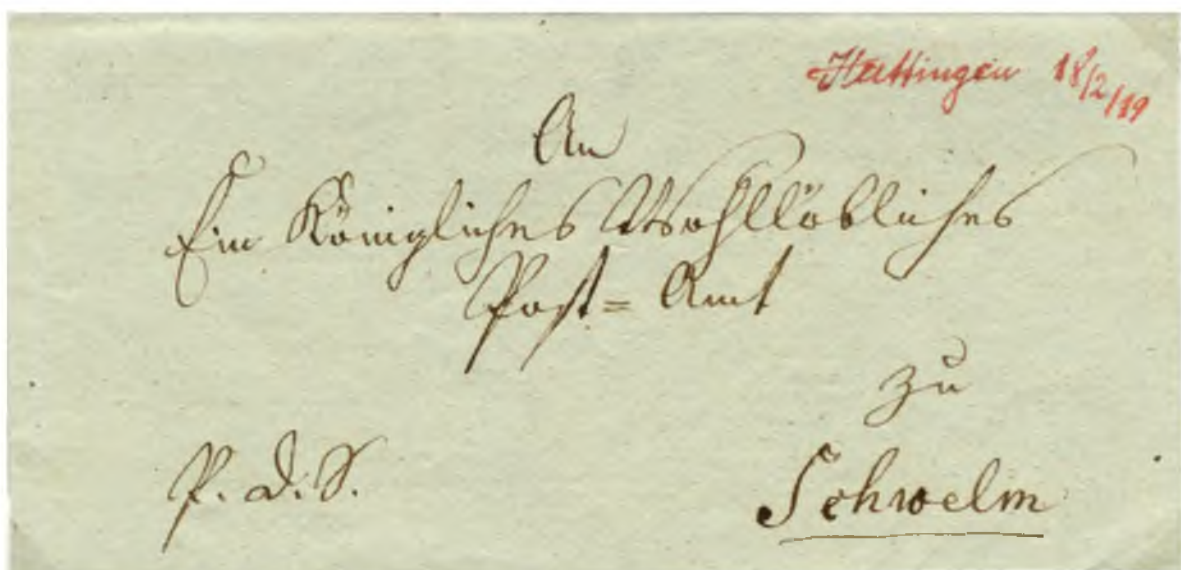 Hattingen 18/2/19
An
Ein Königliches Wohllöbliches
Post=Amt
zu
P. d. S.
Schwelm